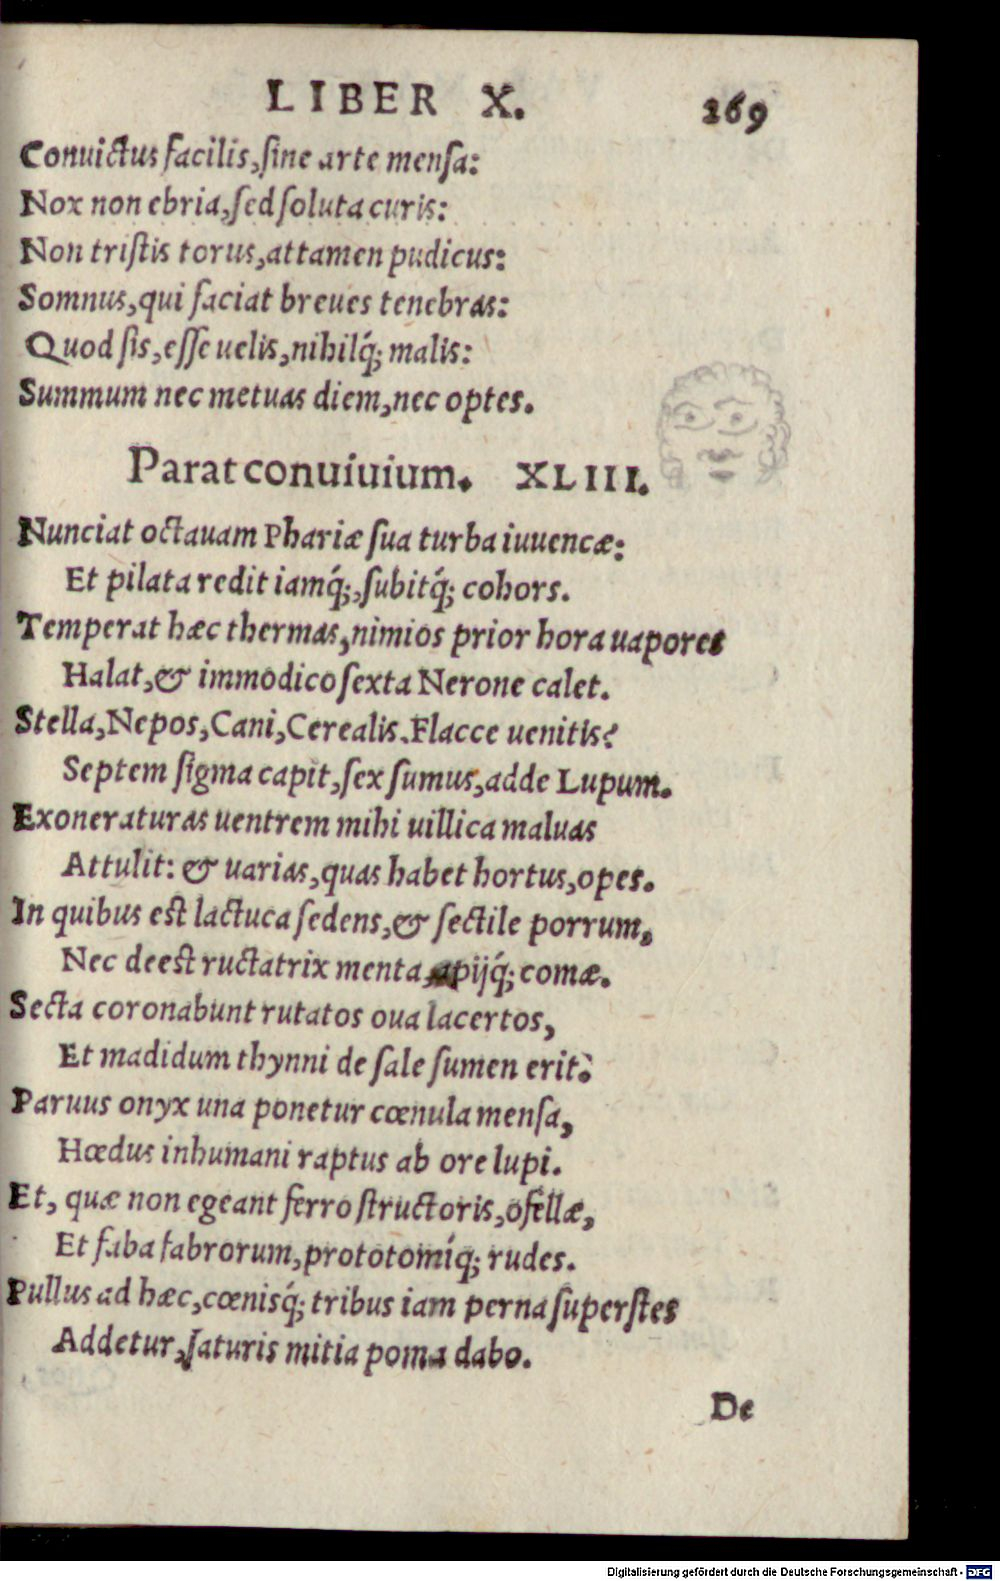 LIBER X. 269
Conuictus facilis, sine arte mensa:
Nox non ebria, sed soluta curis:
Non tristis torus, attamen pudicus:
Somnus, qui faciat breues tenebras:
Quod sis, esse uelis, nihilq́; malis:
Summum nec metuas diem, nec optes.
Parat conuiuium. XLIII.
Nunciat octauam Phariæ sua turba iuuencæ:
Et pilata redit iamq́;, subitq́; cohors.
Temperat hæc thermas, nimios prior hora uapores
Halat, & immodico sexta Nerone calet.
Stella, Nepos, Cani, Cerealis. Flacce uenitis?
Septem sigma capit, sex sumus, adde Lupum.
Exoneraturas uentrem mihi uillica maluas
Attulit: & uarias, quas habet hortus, opes.
In quibus est lactuca sedens, & sectile porrum,
Nec deest ructatrix menta, apijq́; comæ.
Secta coronabunt rutatos oua lacertos,
Et madidum thynni de sale sumen erit.
Paruus onyx una ponetur cœnula mensa,
Hœdus inhumani raptus ab ore lupi.
Et, quæ non egeant ferro structoris, ofellæ,
Et faba fabrorum, prototomíq; rudes.
Pullus ad hæc, cœnisq́; tribus iam perna superstes
Addetur, saturis mitia poma dabo.
De
Digitalisierung gefördert durch die Deutsche Forschungsgemeinschaft - DFG